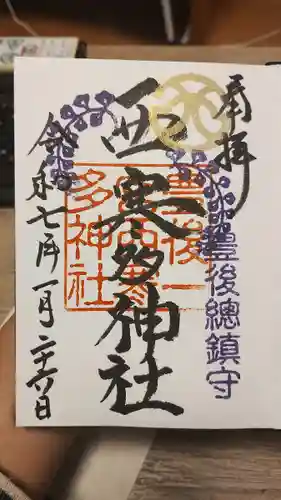 奉拝
豊後總鎮守
西寒多神社
豊後一
宮西寒
多神社
令和七年一月二十六日